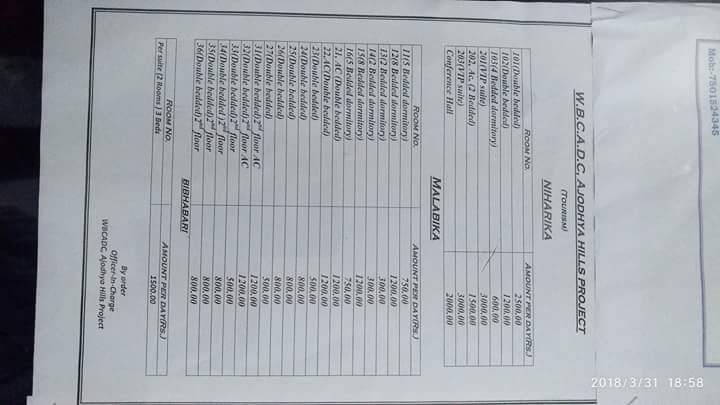 Mob:-7501524345
W.B.C.A.D.C, AJODHYA HILLS PROJECT
(TOURISM)
NIHARIKA
ROOM NO. AMOUNT PER DAY(RS.)
101(Double bedded) 2500.00
102(Double bedded) 1200.00
103(4 Bedded dormitory) 600.00
201(VIP suite) 3000.00
202, Ac, (2 Bedded) 1500.00
203(VIP suite) 3000.00
Conference Hall 2000.00
MALABIKA
ROOM NO. AMOUNT PER DAY(RS.)
11(5 Bedded dormitory) 750.00
12(8 Bedded dormitory) 1200.00
13(2 Bedded dormitory) 300.00
14(2 Bedded dormitory) 300.00
15(8 Bedded dormitory) 1200.00
16(5 Bedded dormitory) 750.00
21, Ac (Double bedded) 1200.00
22,AC(Double bedded) 1200.00
23(Double bedded) 500.00
24(Double bedded) 800.00
25(Double bedded) 800.00
26(Double bedded) 800.00
27(Double bedded) 500.00
31(Double bedded)2nd floor AC 1200.00
32(Double bedded)2nd floor AC 1200.00
33(Double bedded)2nd floor 500.00
34(Double bedded)2nd floor 800.00
35(Double bedded)2nd floor 800.00
36(Double bedded)2nd floor 800.00
BIBHABARI
ROOM NO. AMOUNT PER DAY(RS.)
Per suite (2 Rooms) 3 Beds 1500.00
By order
Officer-In-Charge
WBCADC, Ajodhya Hills Project
2018/3/31 18:58